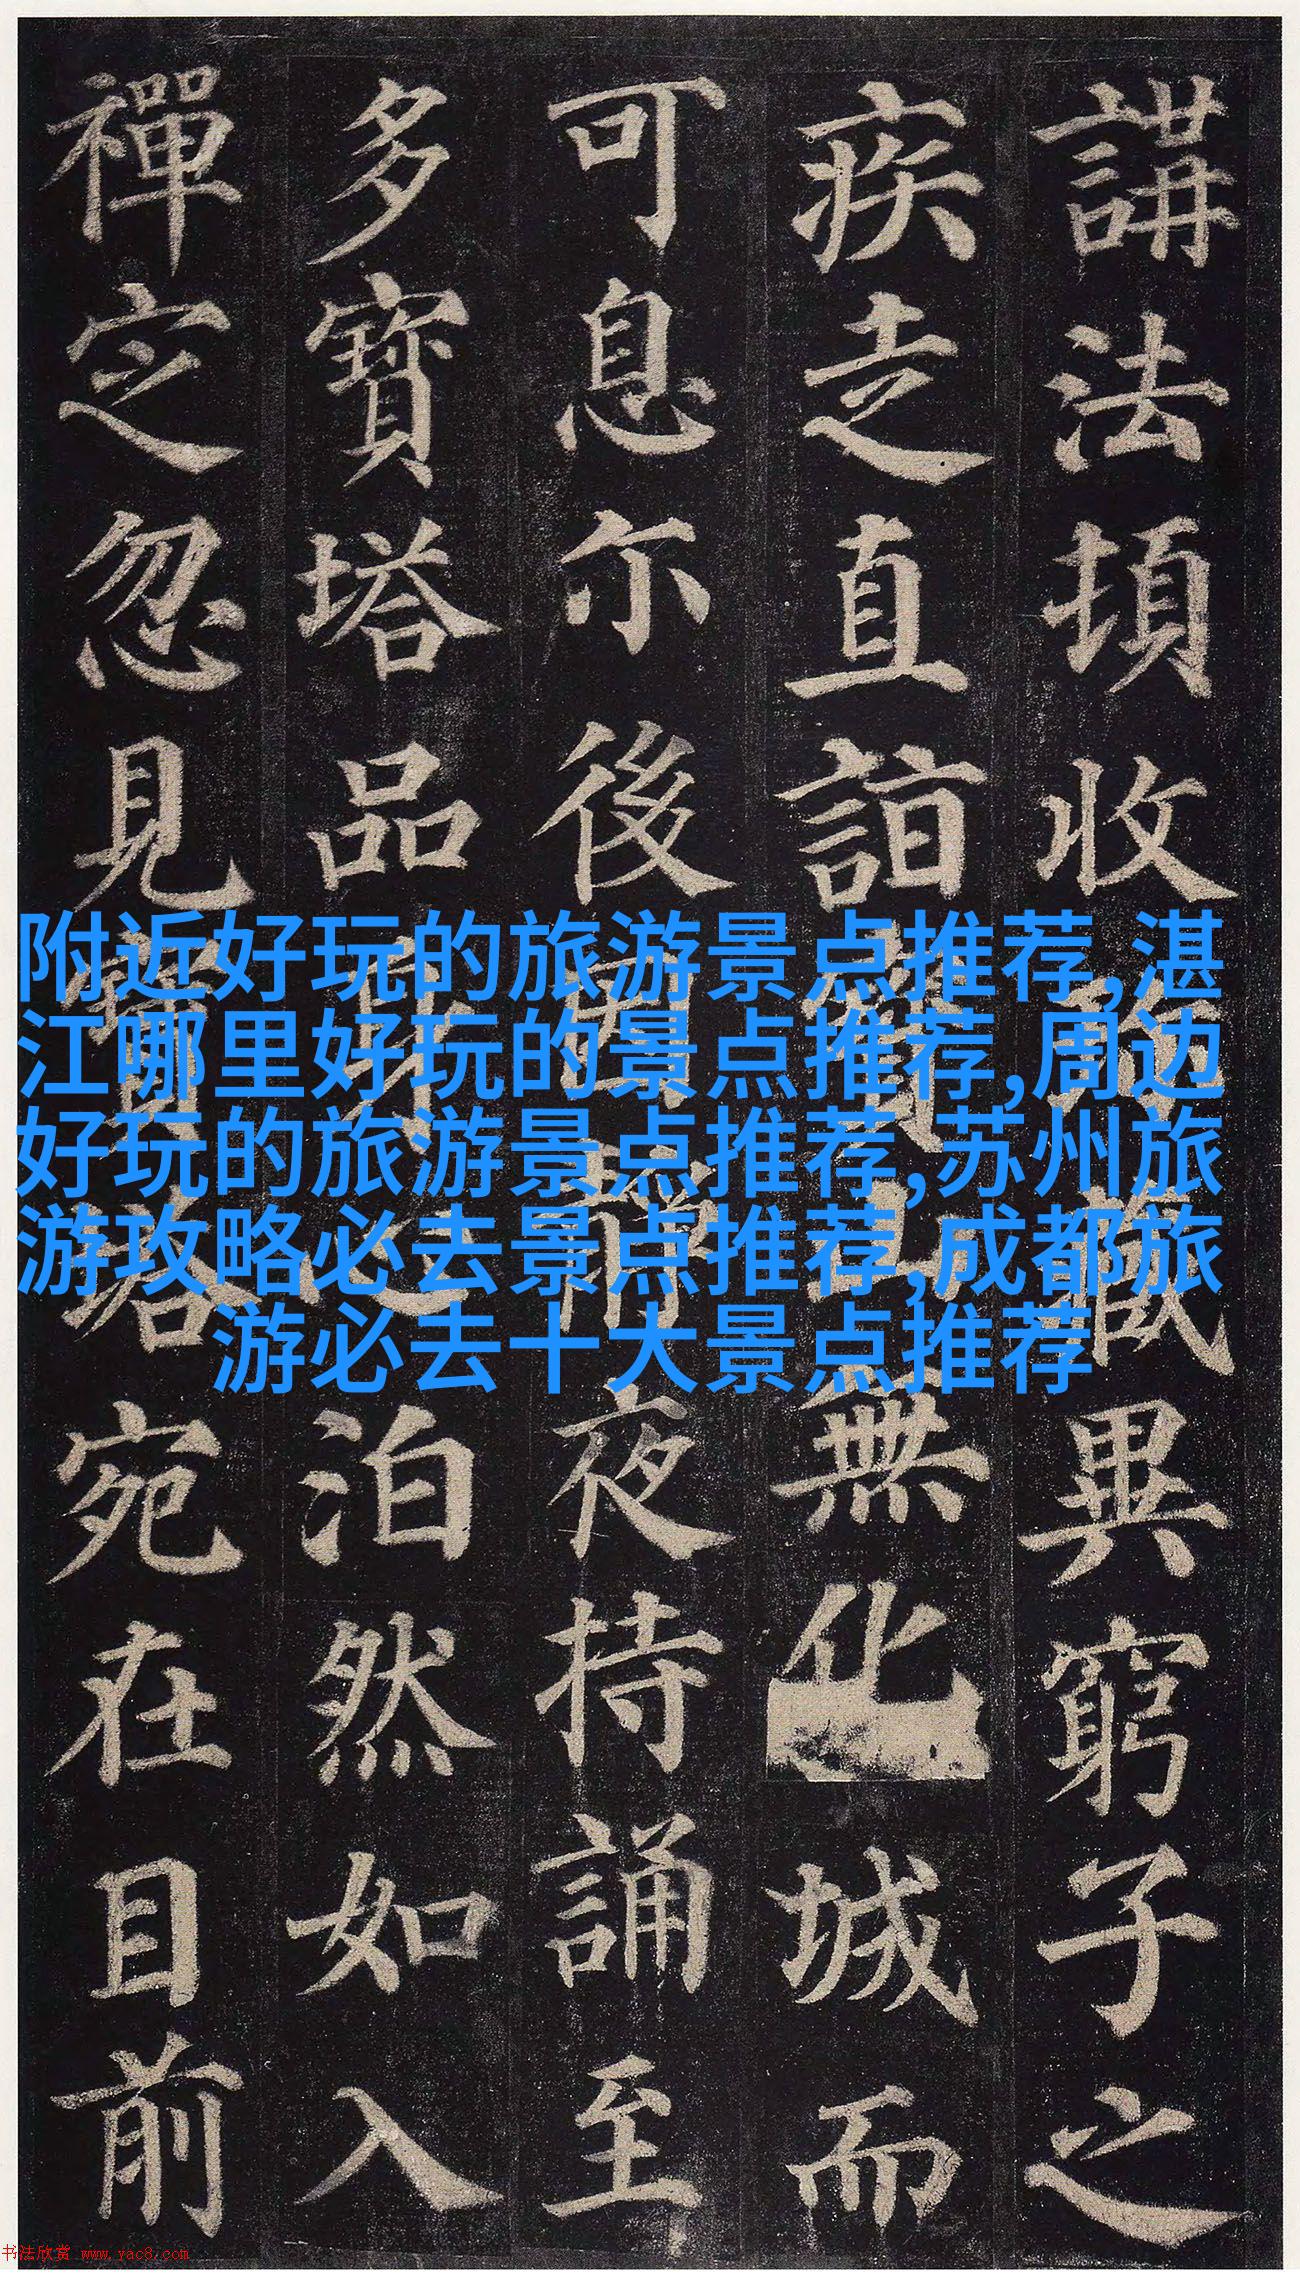 講法頓收藏異窮子之
疾走直詣寶山無化城而
可息尔後因静夜持誦至
多寶塔品身心泊然如入
禪定忽見寶塔宛在目前
附近好玩的旅游景点推荐,湛
江哪里好玩的景点推荐,周边
好玩的旅游景点推荐,苏州旅
游攻略必去景点推荐,成都旅
游必去十大景点推荐
书法欣赏 www.yac8.com